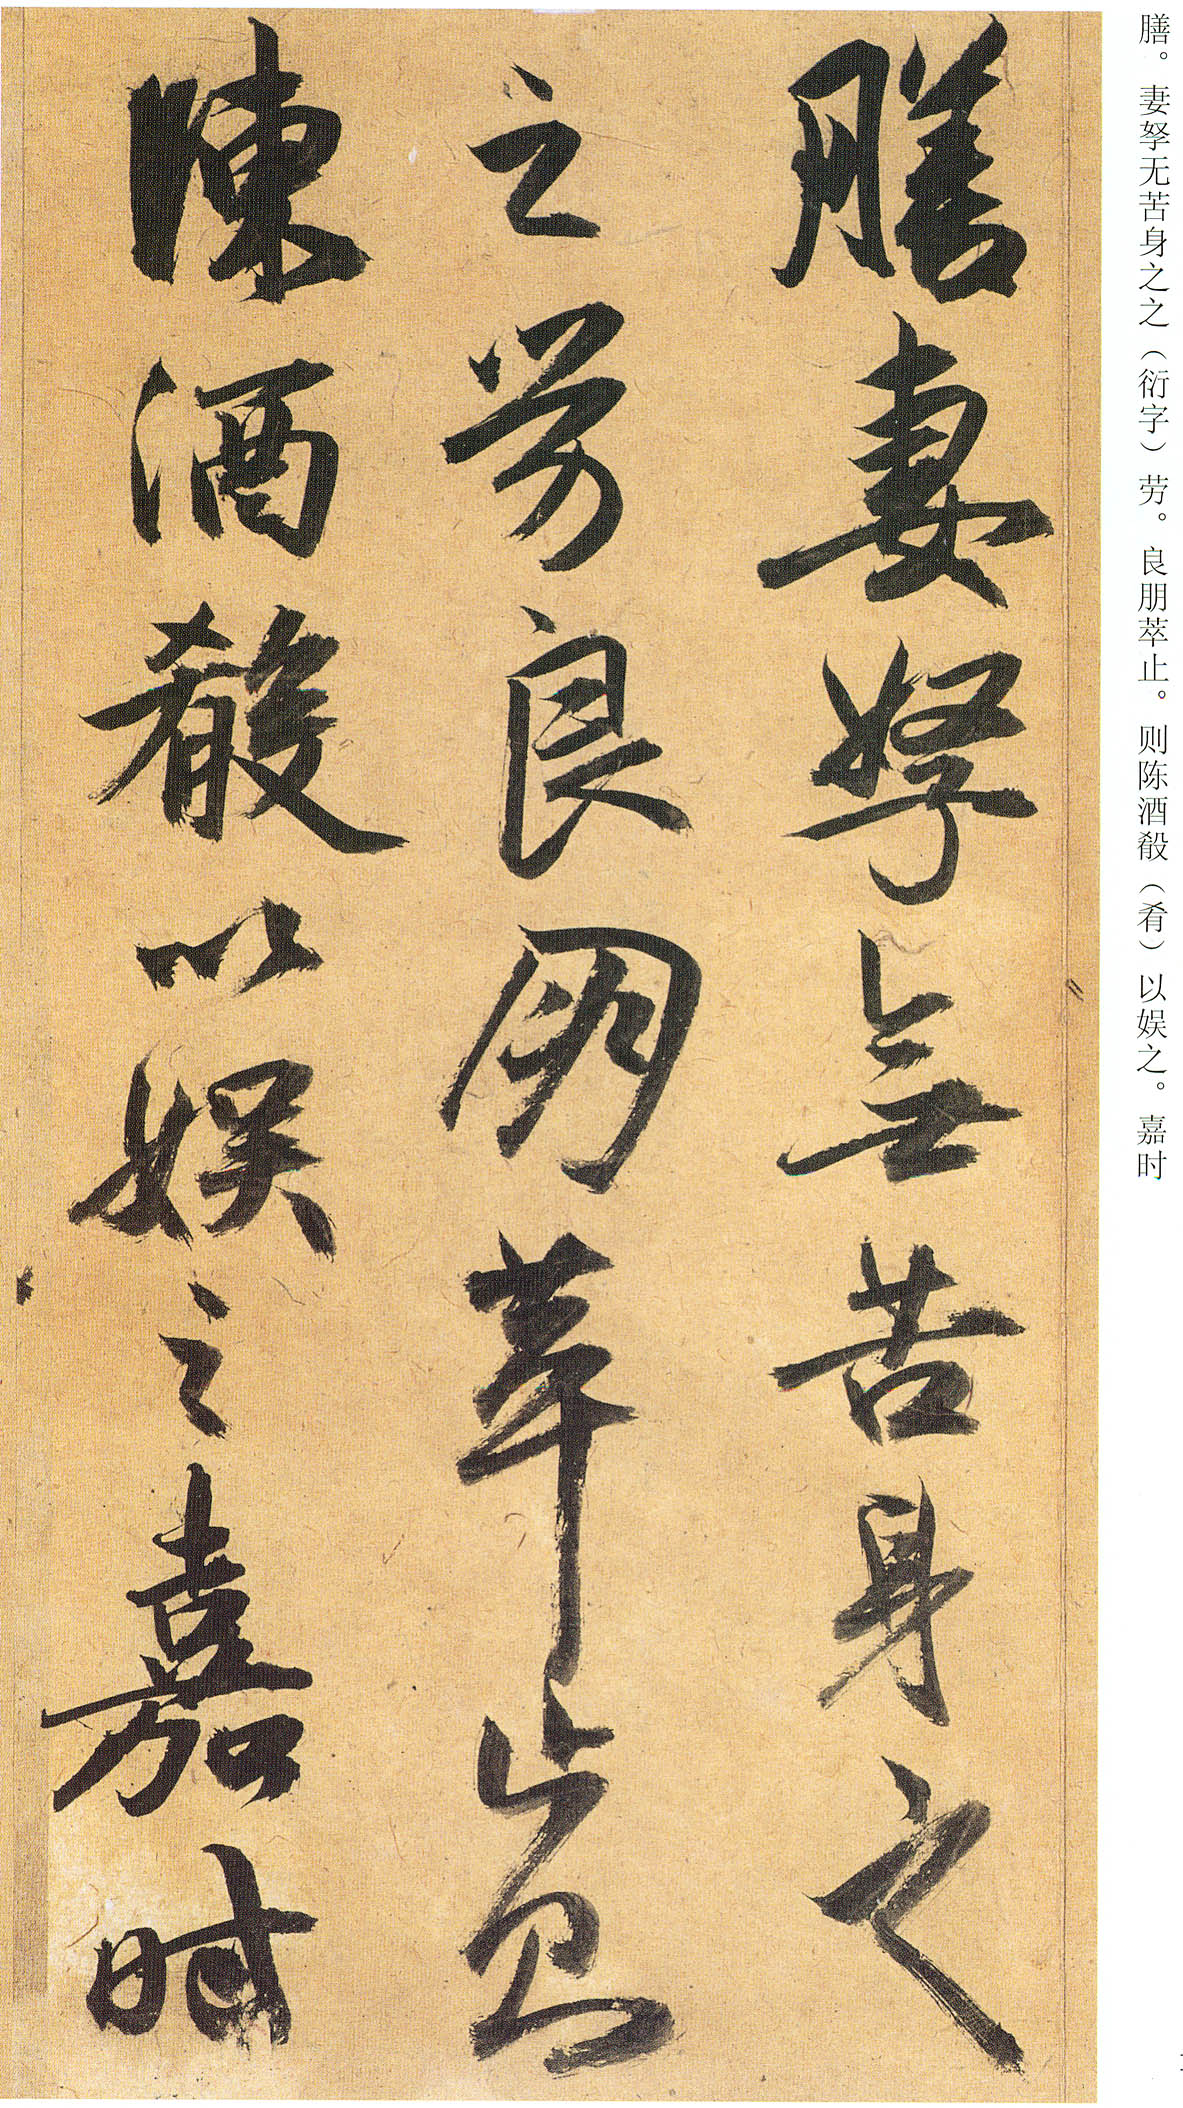 膳。妻孥无苦身之之（衍字）劳。良朋萃止。则陈酒殽（肴）以娱之。嘉时
膳妻孥無苦身之
之労良朋萃止則
陳酒殽以娛之嘉時